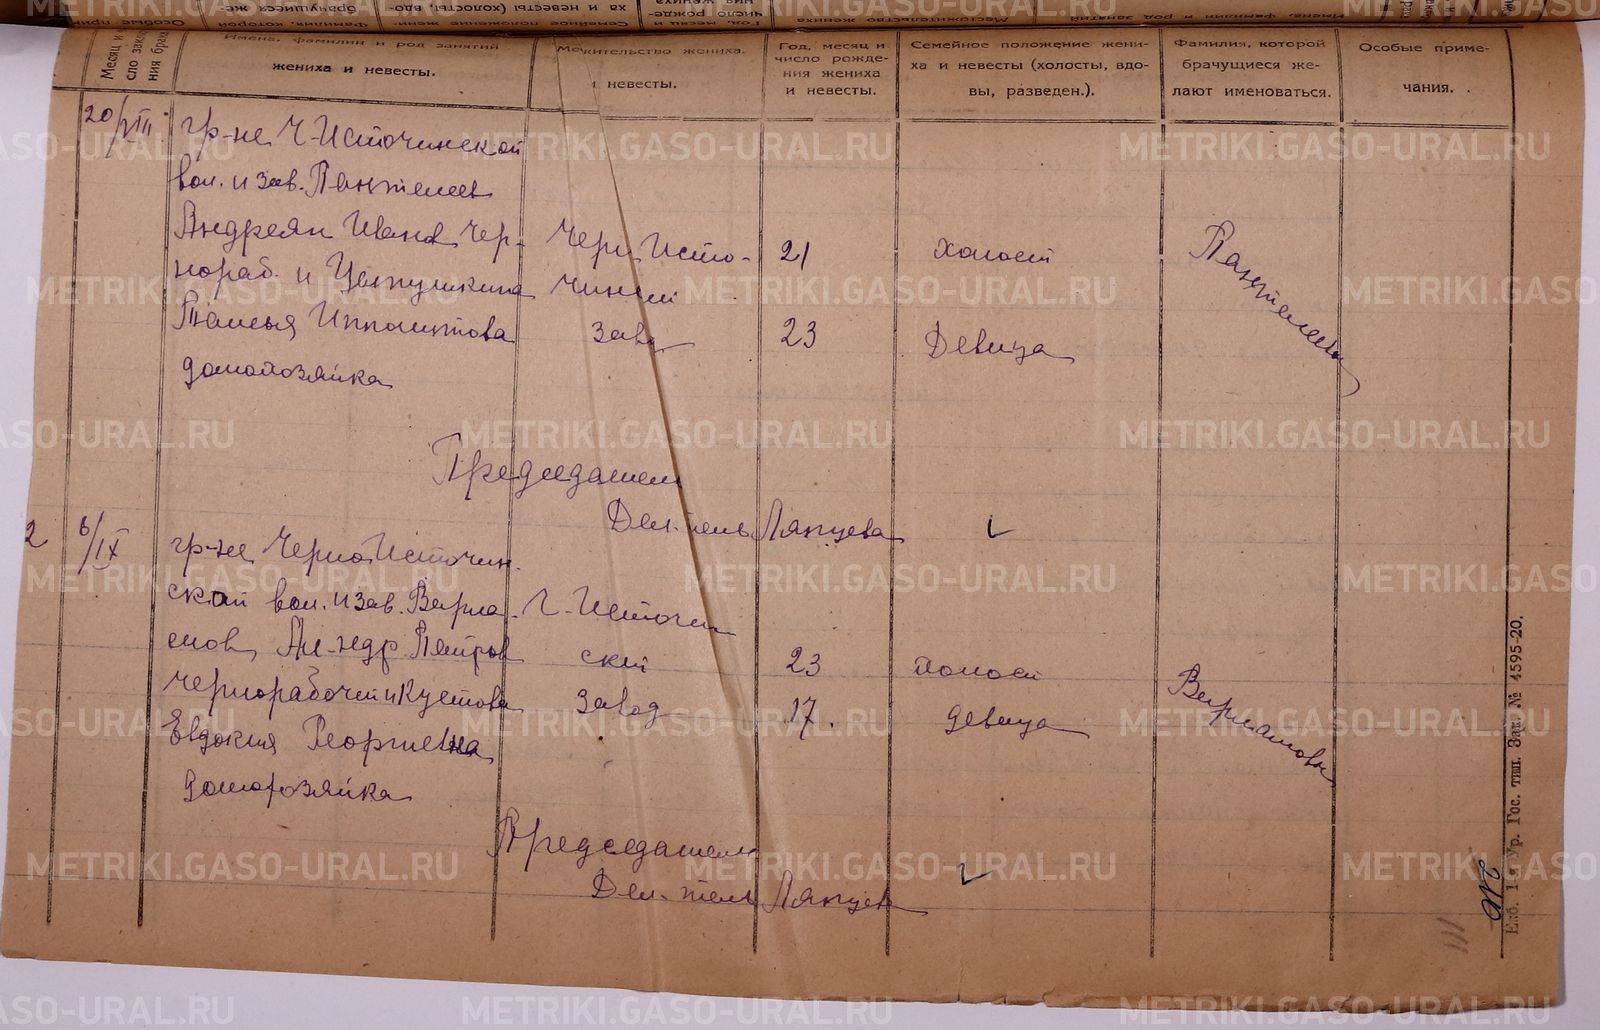 Месяц и
сло заклю
ния брака
Имена, фамилии и род занятий
жениха и невесты.
Местожительство жениха
и невесты.
Год, месяц и
число рожде-
ния жениха
и невесты.
Семейное положение жени-
ха и невесты (холосты, вдо-
вы, разведен.).
Фамилия, которой
брачущиеся же-
лают именоваться.
Особые приме-
чания.
20/VIII
гр-не Ч-Источинской
вол. и зав. Пантелеев
Андреян Иванов чер-
нораб. и Цепушкина
Талья Ипполитова
домохозяйка
Черн Исто-
чинский
Заву
21
23
холост
Девица
Пантелеевы
Председатель
Дел-тель Ляпцева
2
6/IX
гр-не Черно Источин.
ской вол. и зав. Верна-
Ал-ндр. Петров
чернорабочий и Кустова
Евдокия Георгиевна
домохозяйка
Ч-Источин
ский
завод
23
17.
холост
девица
Председатель
Дел-тель Ляпцев
Екб. 1-я Ур. Гос. тип. Зак. № 4595-20.
METRIKI.GASO-URAL.RU